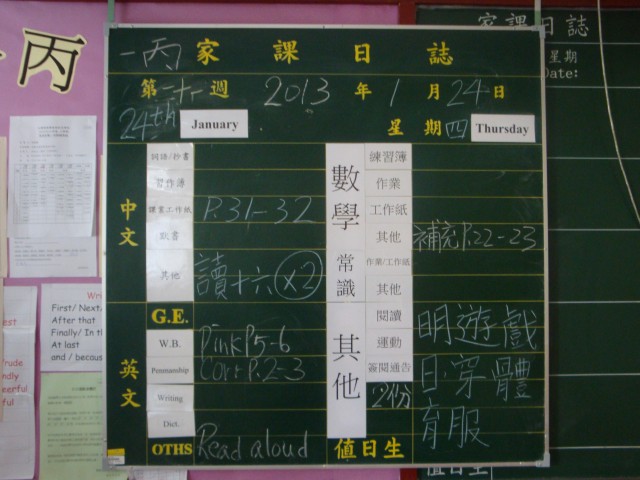 一丙 家課日誌
第廿一週 2013年1月24日
24th January 星期四 Thursday
中文
詞語/抄書
習作簿
課業工作紙 P.31-32
默書
其他 讀十六 ×2
英文
G.E.
W.B. Pink P5-6
Penmanship Corr P.2-3
Writing
Dict.
OTHS Read aloud
數學
練習簿
作業
工作紙
其他 補充P.22-23
常識
作業/工作紙
其他
其他
閱讀 明遊戲
運動 日穿體
簽閱通告 2份 育服
值日生
家課日誌
星期
Date:
值日生
丙
First/ Next/
After that
Finally/ In th
At last
and / becaus